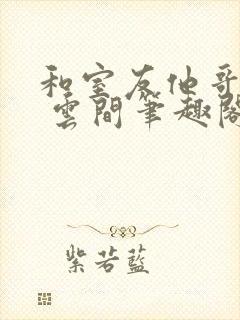 和室友他哥
雲間筆趣閣
紫若藍